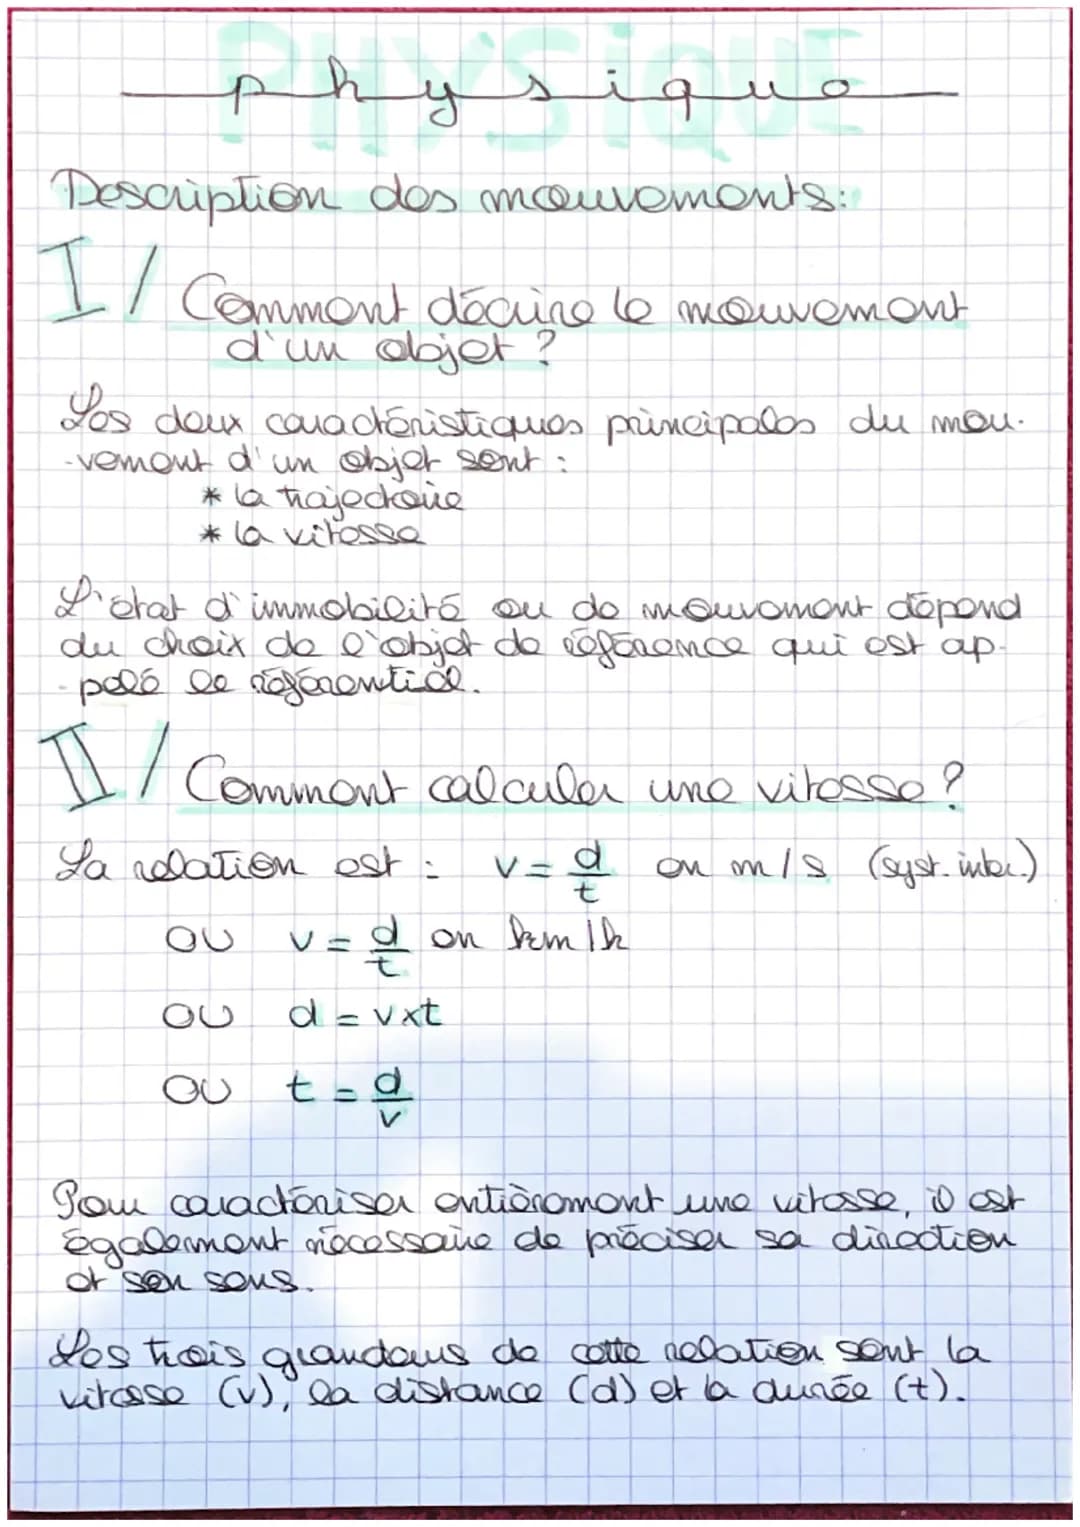 PHYSIQUE
physique
Description des mouvements:
I/ Comment décrire le mouvement
d'un objet ?
Les deux caractéristiques principales du mou-
-vement d'un objet sont :
* la trajectoire
* la vitesse
L'état d'immobilité ou de mouvement dépend
du choix de l'objet de référence qui est ap-
-pelé le référentiel.
II/ Comment calculer une vitesse ?
La relation est : v = d/t en m/s (syst. inter.)
ou v = d/t en km/h
ou d = v×t
ou t = d/v
Pour caractériser entièrement une vitesse, il est
également nécessaire de préciser sa direction
et son sens.
Les trois grandeurs de cette relation sont la
vitesse (v), la distance (d) et la durée (t).